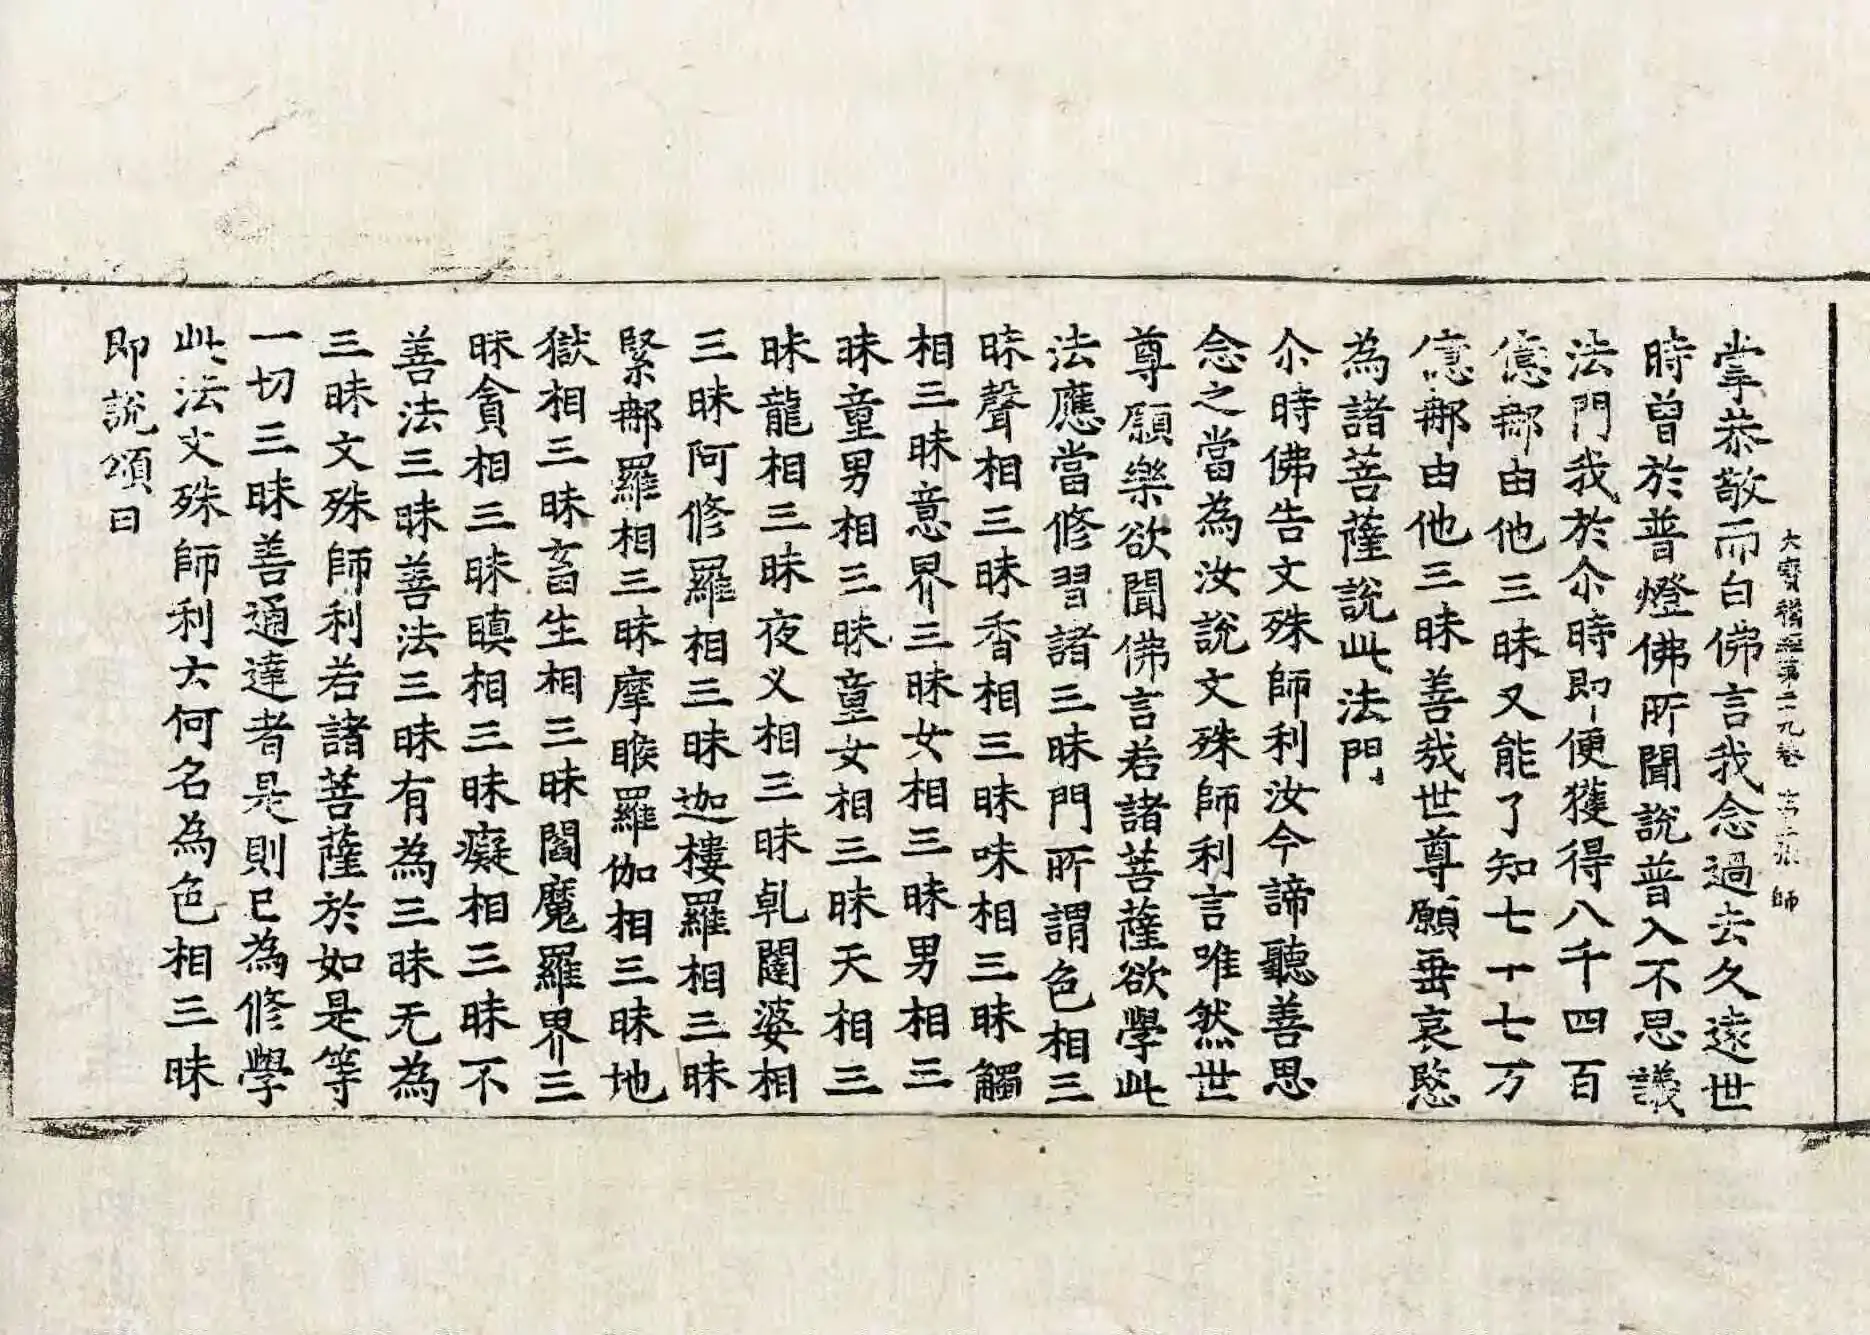 大寶積經第二十九卷 第二張 師
掌恭敬而白佛言我念過去久遠世
時曽於普燈佛所聞説普入不思議
法門我於尒時即便獲得八千四百
億那由他三昧又能了知七十七万
億那由他三昧善哉世尊願垂哀愍
為諸菩薩説此法門
尒時佛告文殊師利汝今諦聽善思
念之當為汝説文殊師利言唯然世
尊願樂欲聞佛言若諸菩薩欲學此
法應當修習諸三昧門所謂色相三
昧聲相三昧香相三昧味相三昧觸
相三昧意界三昧女相三昧男相三
昧童男相三昧童女相三昧天相三
昧龍相三昧夜叉相三昧乹闥婆相
三昧阿修羅相三昧迦樓羅相三昧
緊那羅相三昧摩睺羅伽相三昧地
獄相三昧畜生相三昧閻魔羅界三
昧貪相三昧瞋相三昧癡相三昧不
善法三昧善法三昧有為三昧无為
三昧文殊師利若諸菩薩於如是等
一切三昧善通達者是則已為修學
此法文殊師利云何名為色相三昧
即説頌曰